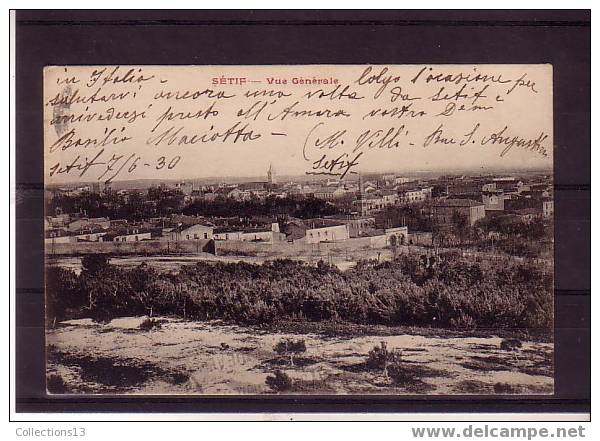 SÉTIF — Vue Générale
in Italia — Colgo l'occasione per
salutarvi ancora una volta da Setif —
arrivederci presto all' vostro
Basilio Maciotta — (M. Villi Rue S. Augustin
Setif 7/6-30 Setif
Collections13
www.delcampe.net